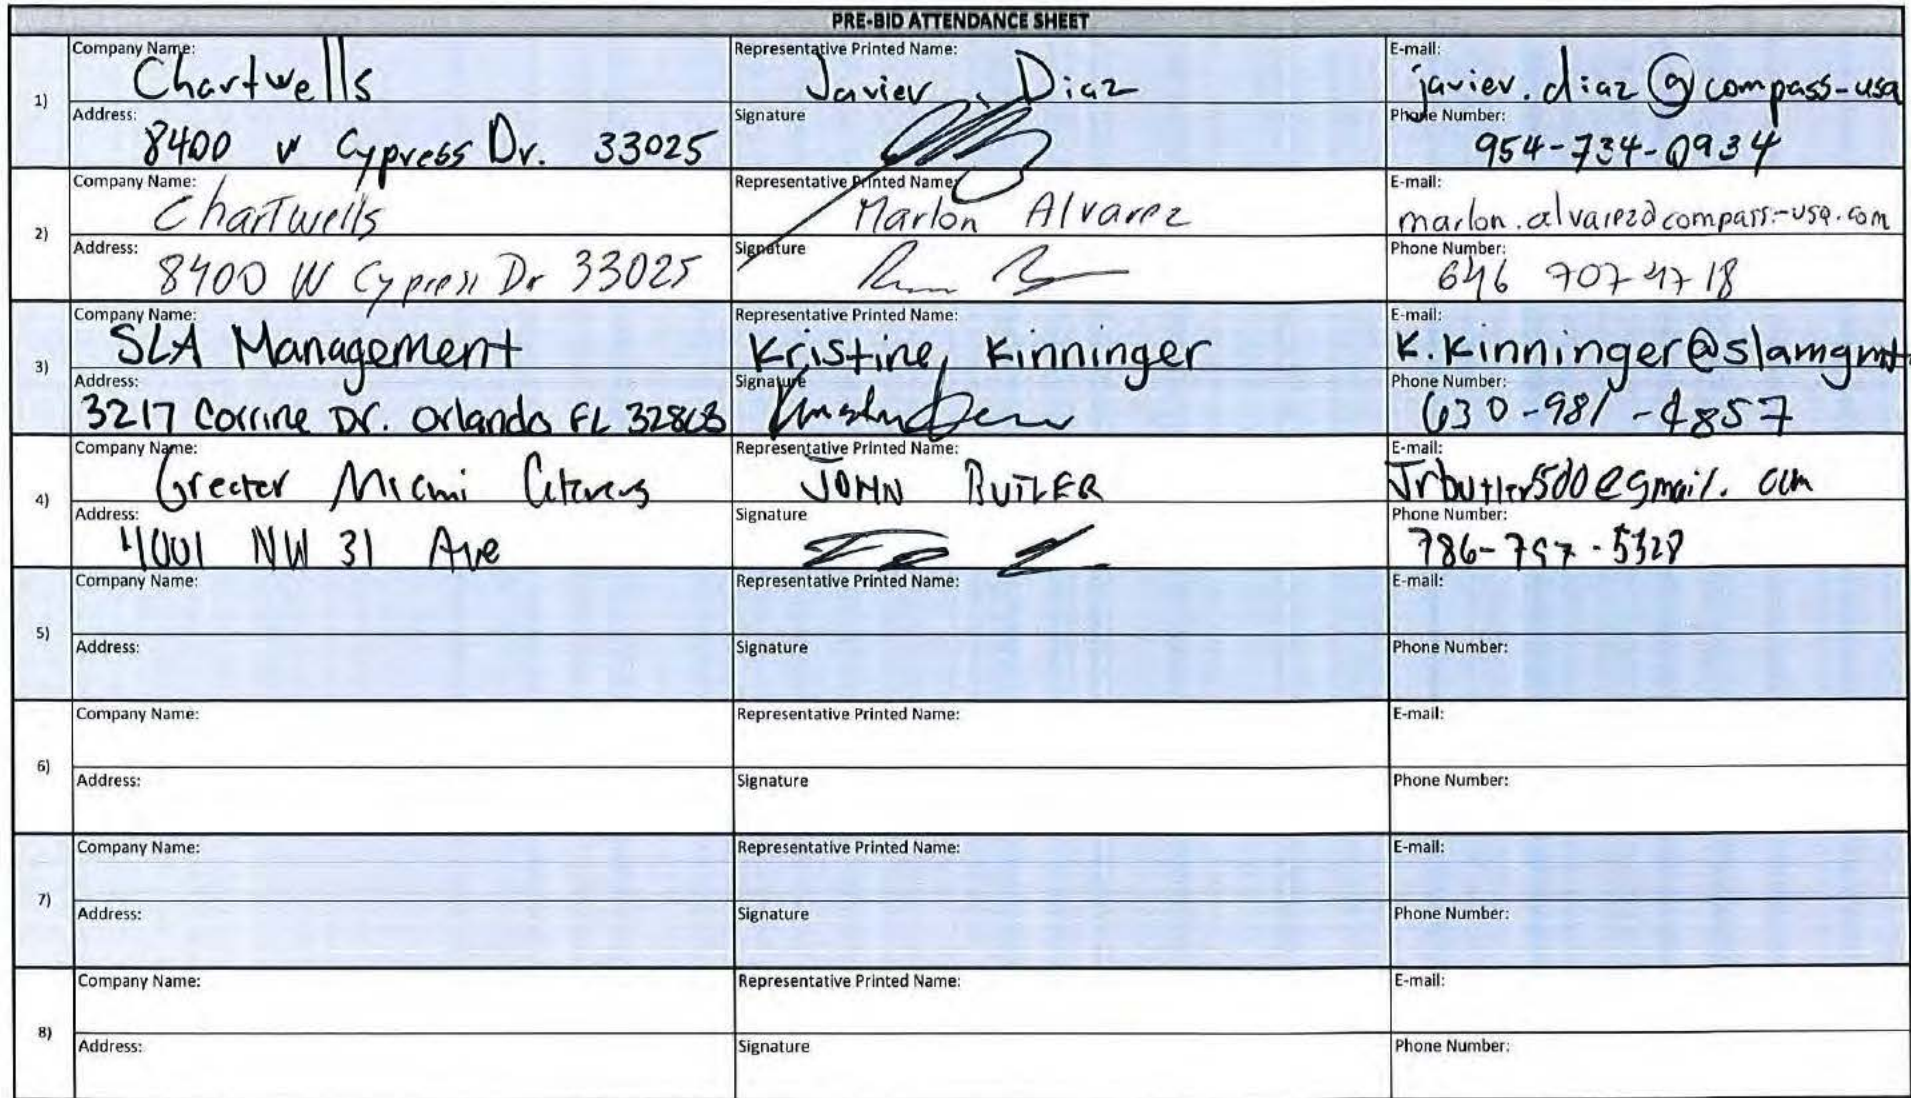 PRE-BID ATTENDANCE SHEET
1)
Company Name: Chartwells
Representative Printed Name: Javier Diaz
E-mail: javier.diaz@compass-usa
Address: 8400 W Cypress Dr. 33025
Signature
Phone Number: 954-734-0934
2)
Company Name: Chartwells
Representative Printed Name: Marlon Alvarez
E-mail: marlon.alvarez@compass-usa.com
Address: 8400 W Cypress Dr 33025
Signature
Phone Number: 646 707 4718
3)
Company Name: SLA Management
Representative Printed Name: Kristine Kinninger
E-mail: K.Kinninger@slamgmt.
Address: 3217 Corrine Dr. Orlando FL
Signature
Phone Number: 630-981-4857
4)
Company Name: Greater Miami Caterers
Representative Printed Name: JOHN BUTLER
E-mail: Jrbutler500@gmail.com
Address: 4001 NW 31 Ave
Signature
Phone Number: 786-
5)
Company Name:
Representative Printed Name:
E-mail:
Address:
Signature
Phone Number:
6)
Company Name:
Representative Printed Name:
E-mail:
Address:
Signature
Phone Number:
7)
Company Name:
Representative Printed Name:
E-mail:
Address:
Signature
Phone Number:
8)
Company Name:
Representative Printed Name:
E-mail:
Address:
Signature
Phone Number: